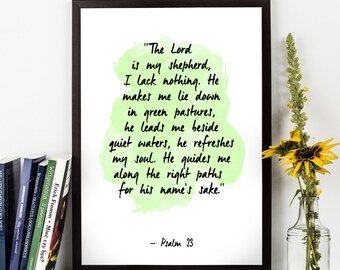 "The Lord
is my shepherd,
I lack nothing. He
makes me lie down
in green pastures,
he leads me beside
quiet waters, he refreshes
my soul. He guides me
along the right paths
for his name's sake."
– Psalm 23